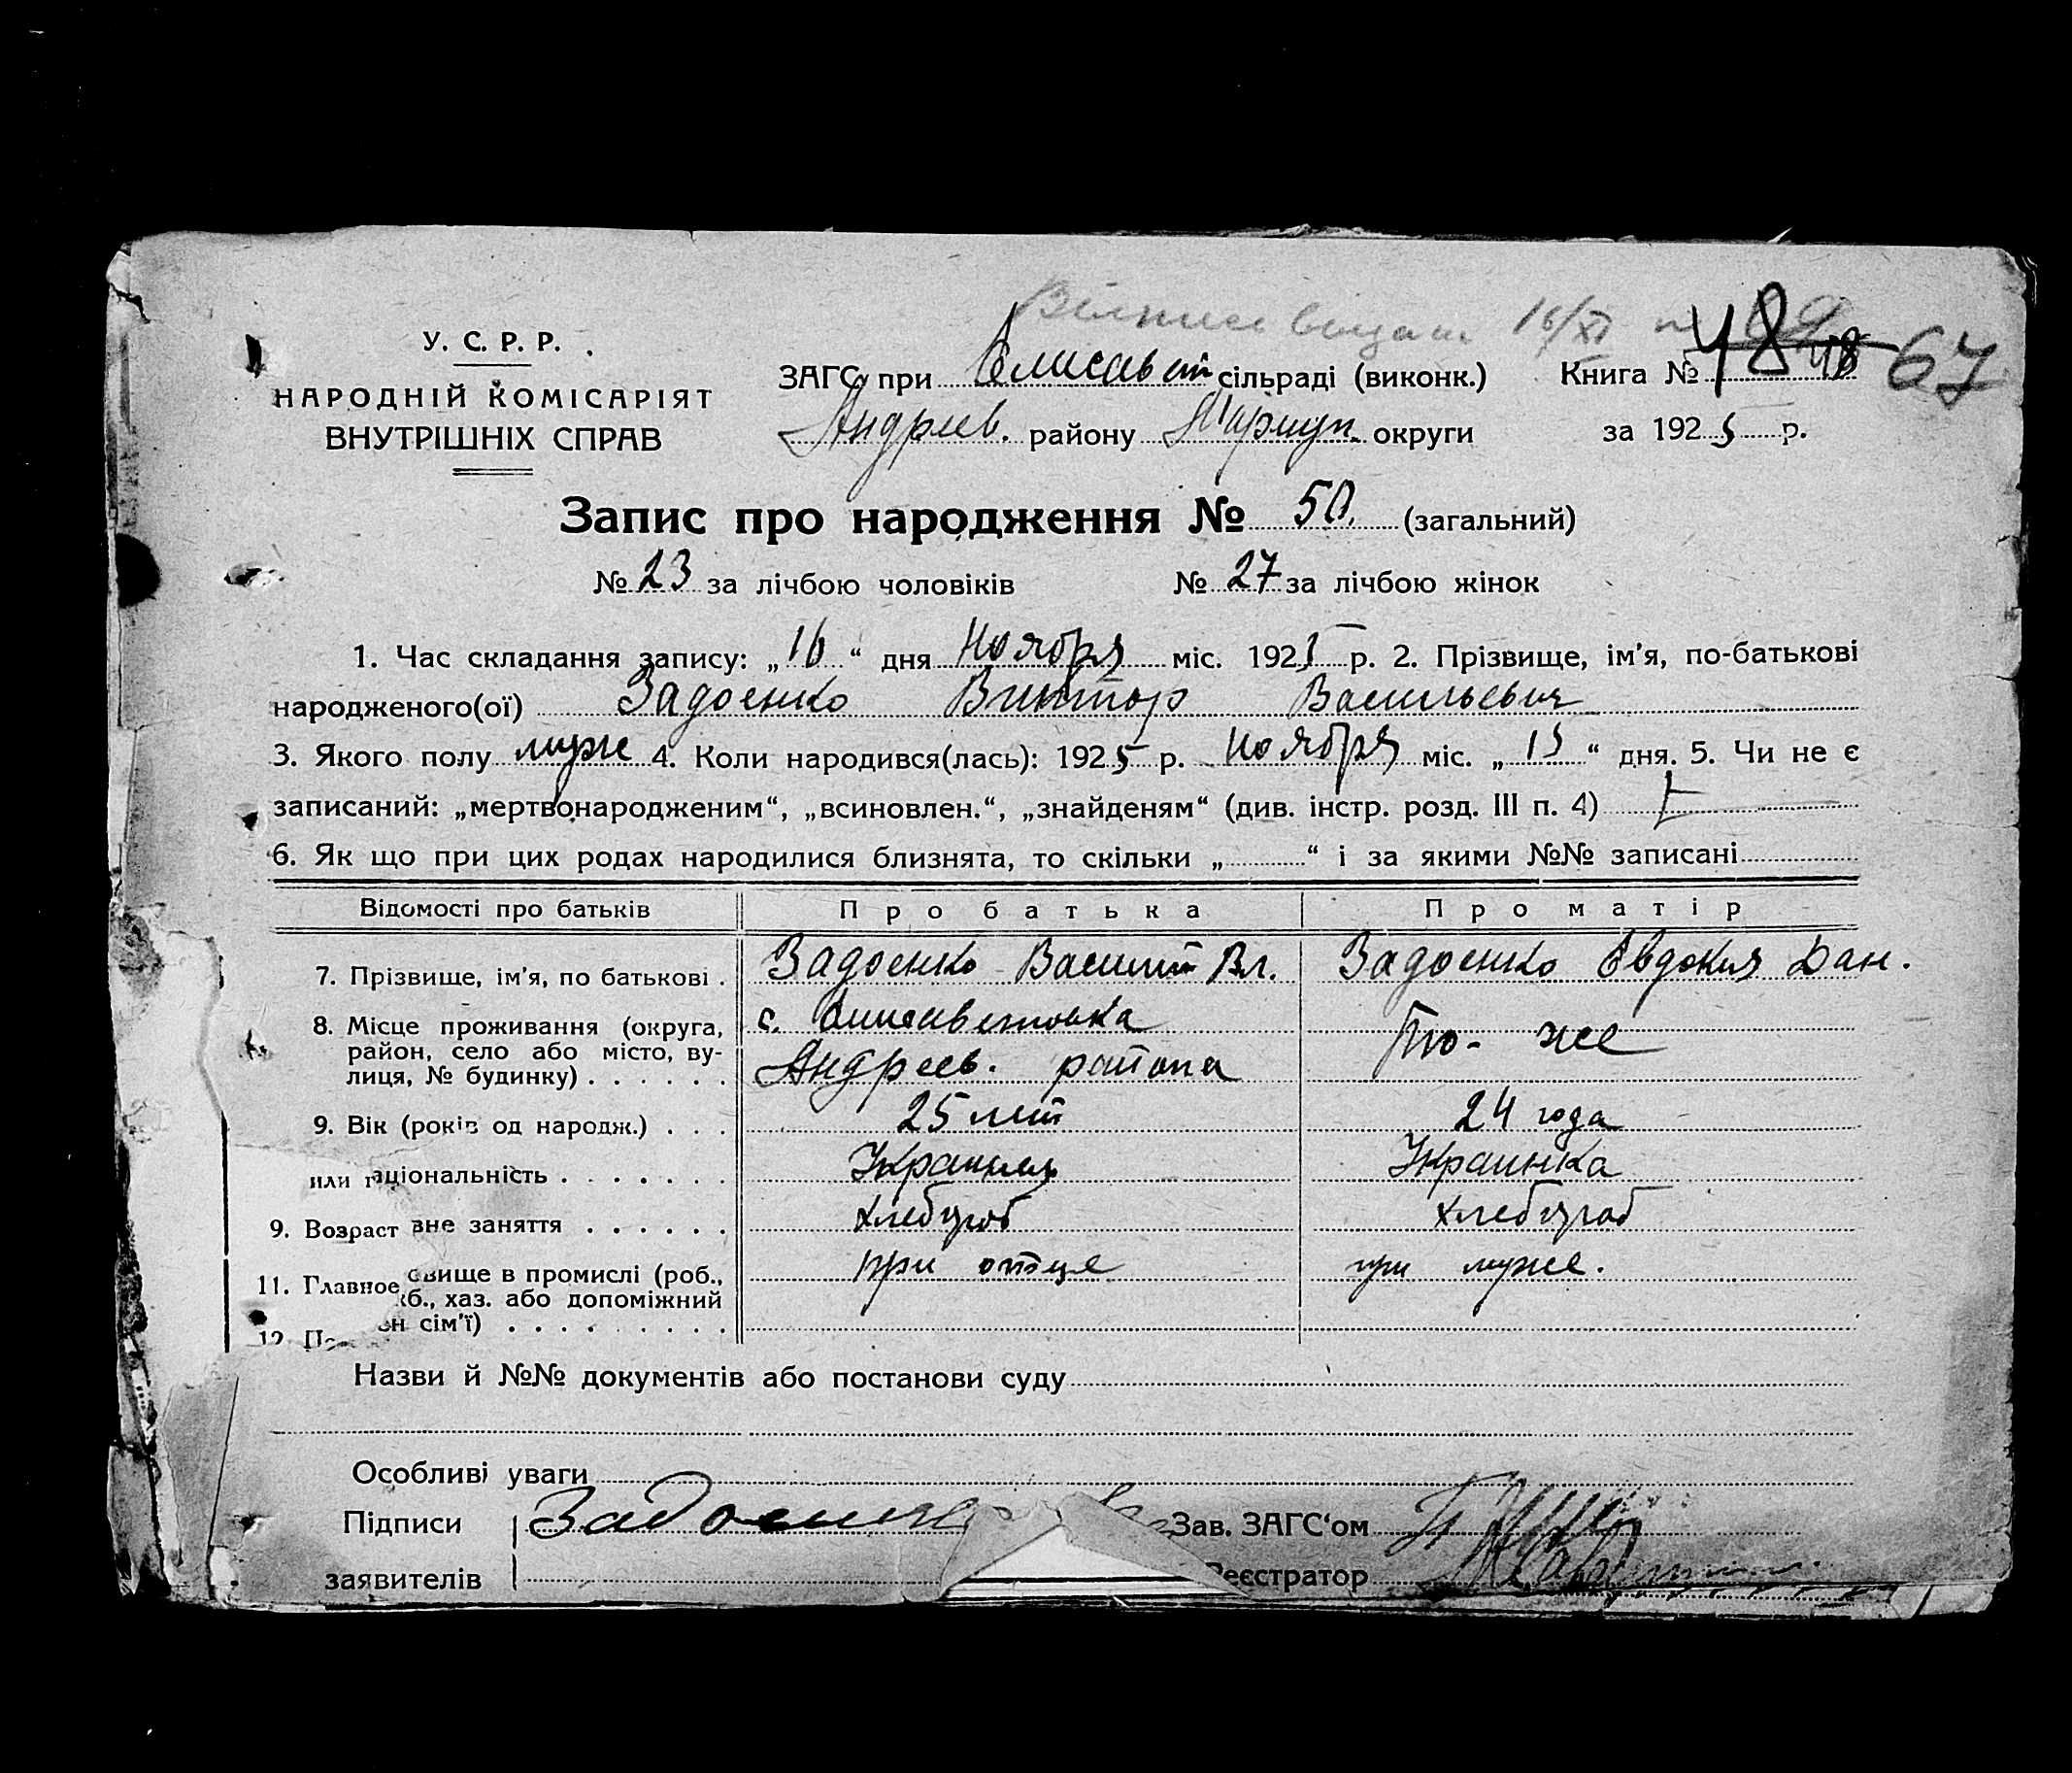 16/XI
У. С. Р. Р.
НАРОДНІЙ КОМІСАРІЯТ
ВНУТРІШНІХ СПРАВ
ЗАГС при Елисавет сільраді (виконк.) Книга № 48 67
Андреев. району Мариуп. округи за 1925 р.
Запис про народження № 50. (загальний)
№ 23 за лічбою чоловіків № 27 за лічбою жінок
1. Час складання запису: „16“ дня Ноября міс. 1925 р. 2. Прізвище, ім'я, по-батькові
народженого(ої) Задоенко Виктор Васильевич
3. Якого полу муж 4. Коли народився(лась): 1925 р. Ноября міс. „15“ дня. 5. Чи не є
записаний: „мертвонародженим“, „всиновлен.“, „знайденям“ (див. інстр. розд. III п. 4)
6. Як що при цих родах народилися близнята, то скільки „ “ і за якими №№ записані
Відомості про батьків Про батька Про матір
7. Прізвище, ім'я, по батькові . Задоенко Василий Вл. Задоенко Евдокия Дан.
8. Місце проживання (округа, с. Елисаветовка
район, село або місто, ву- То-же
лиця, № будинку) . . . . . . Андреев. района
9. Вік (років од народж.) . . . 25 лет 24 года
или аціональність . . . . . . . Украинец Украинка
9. Возраст вне заняття . . . . . . Хлебороб Хлебороб
11. Главное овище в промислі (роб., при отце при муже.
б., хаз. або допоміжний
12 П он сім'ї) . . . . . . . . .
Назви й №№ документів або постанови суду
Особливі уваги
Підписи Задоенко Зав. ЗАГС'ом
заявителів Реєстратор